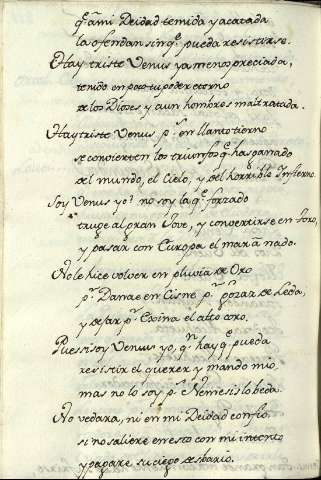 q.e a mi Deidad temida y acatada
la ofendan sin q.e pueda resistirse.
Hay triste Venus ya menospreciada,
tenido en poco tu poder eterno
de los Dioses, y aun hombres maltratada.
Hay triste Venus p.r en llanto tierno
se convierten los triunfos q.e has ganado
del mundo, el Cielo, y del horrible Infierno.
Soy Venus yo? no soy la q.e forzado
truge al gran Jove, y convertirse en toro,
y pasar con Europa el mar a nado.
No le hice volver en pluvia de Oro
p.r Danae en Cisne p.r gozar de Leda,
y dejar p.r Egina el alto coro.
Pues si soy Venus yo, q.n hay q.e pueda
resistir el querer y mando mio
mas no lo soy p.s Nemesis lo beda.
No vedara, ni en mi Deidad confio
si no saliere en esto con mi intento
y pagare su ciego desbario.